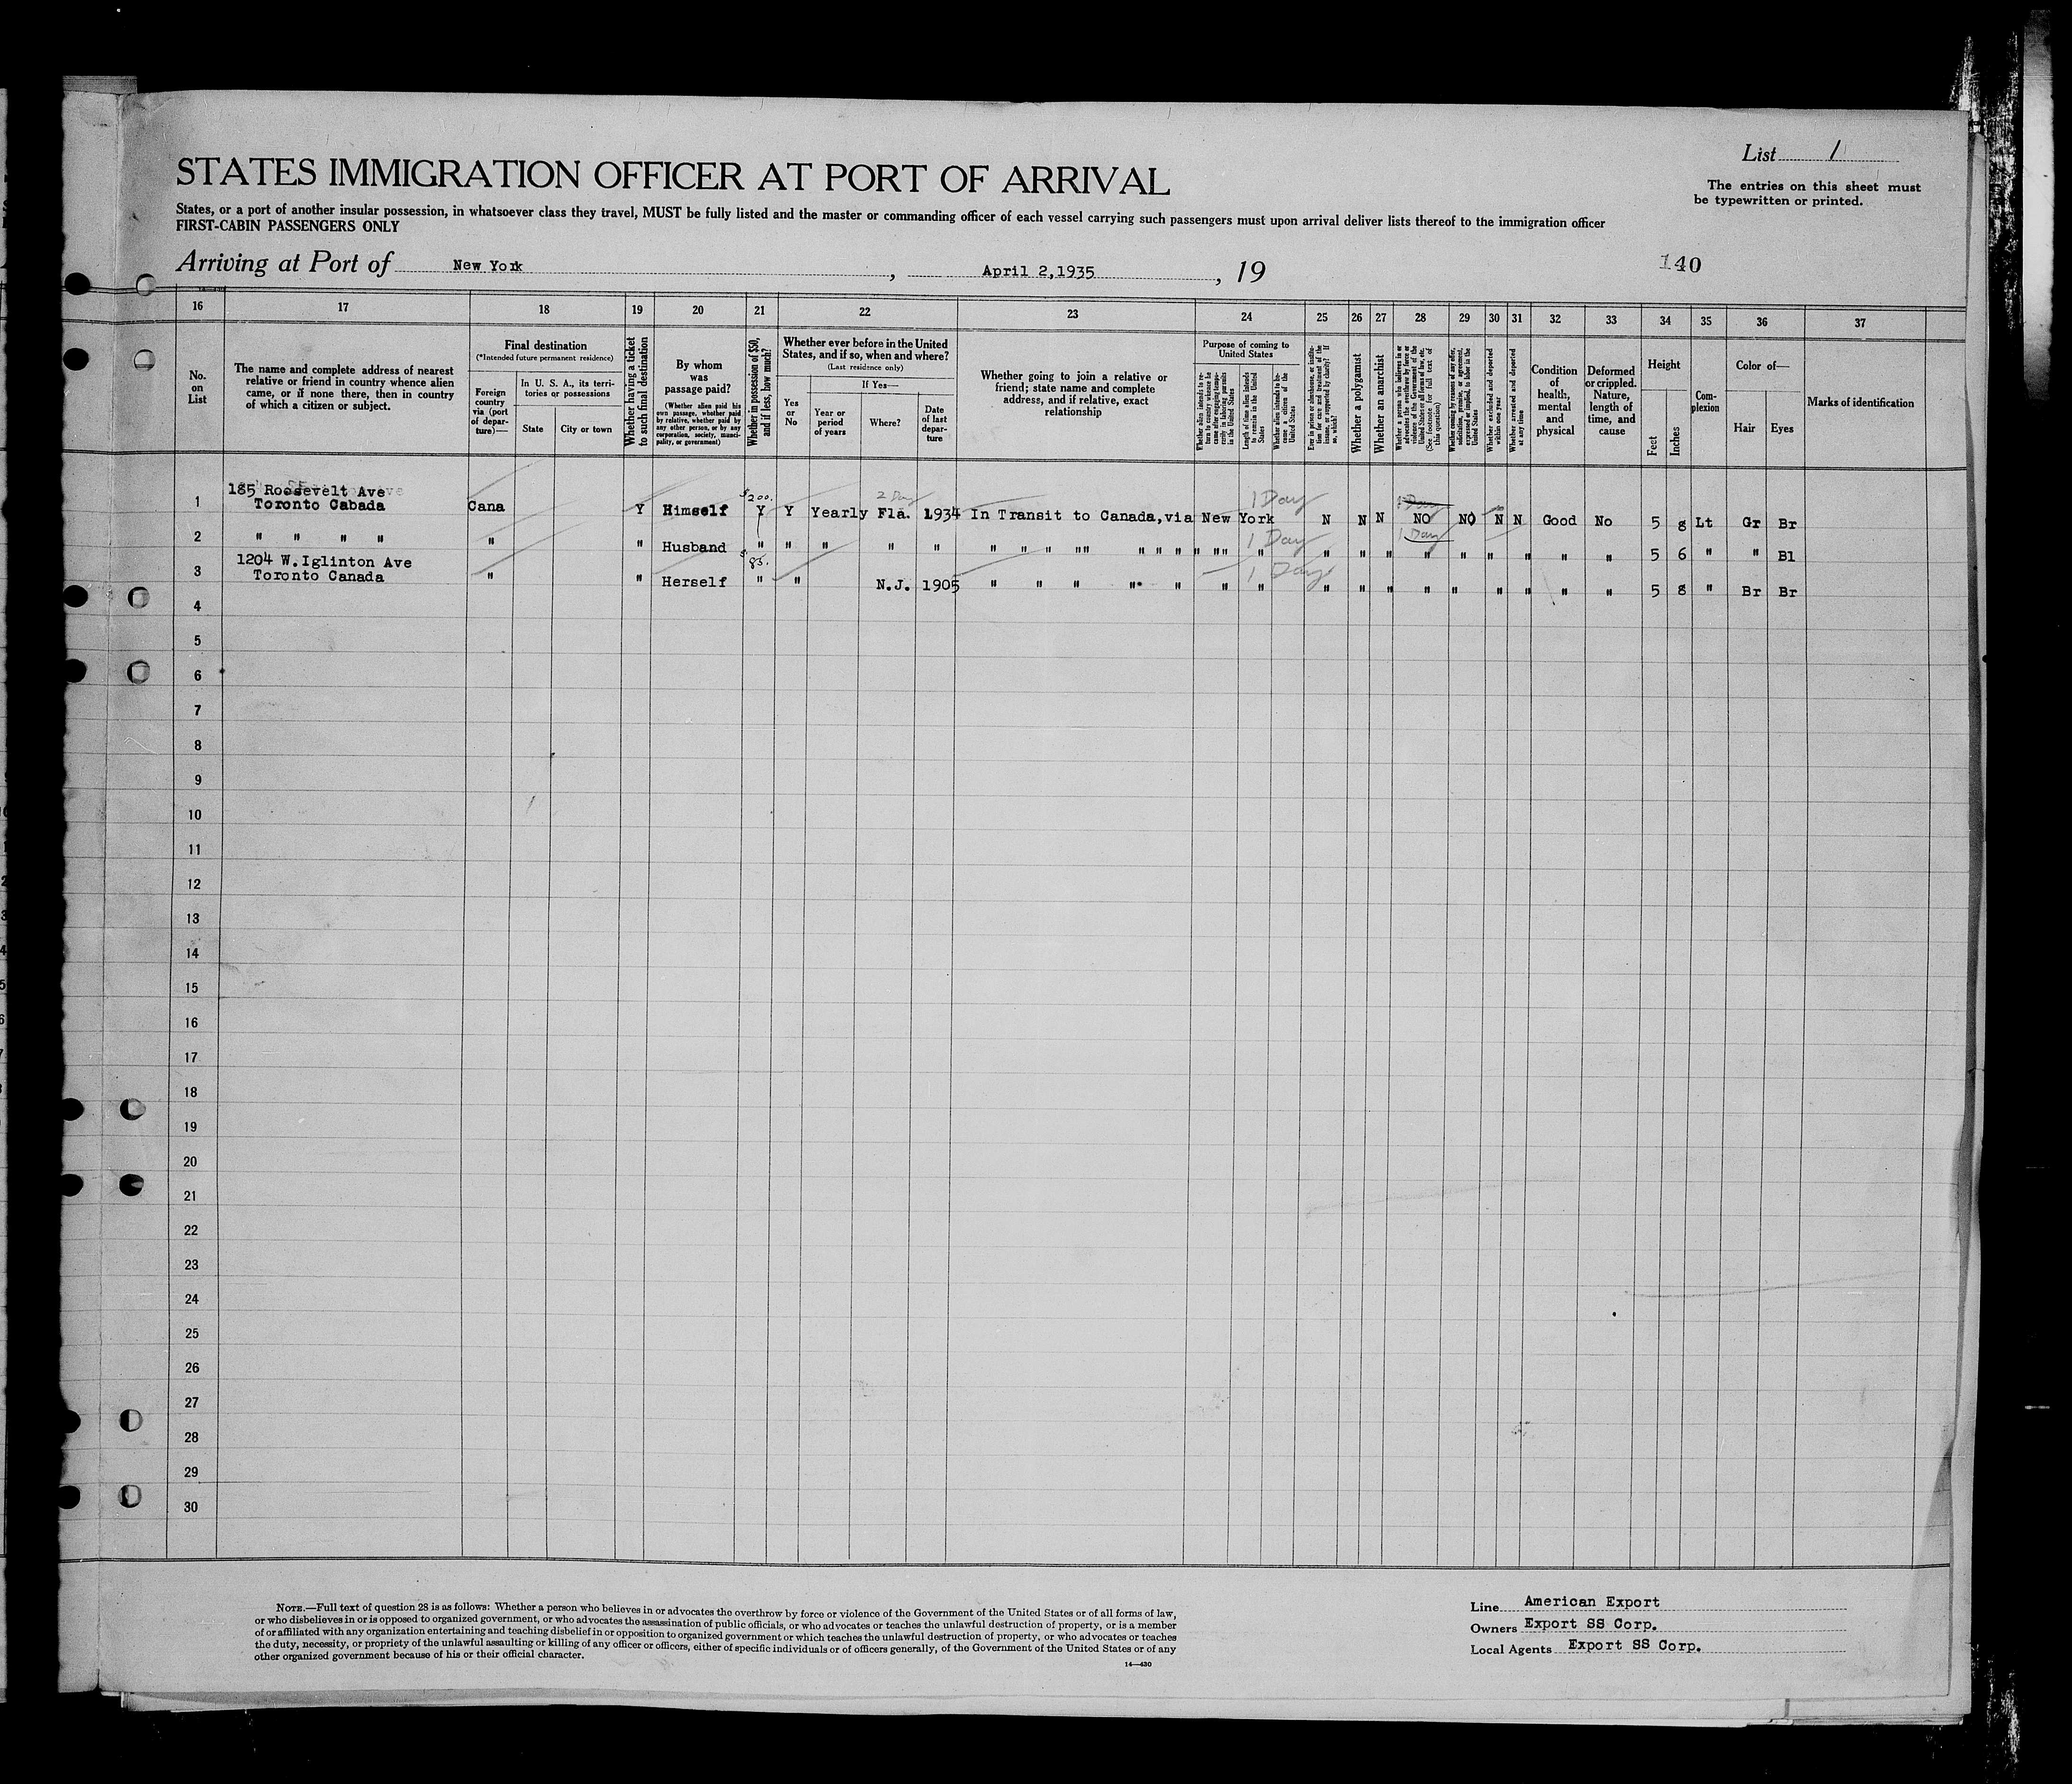 List 1
The entries on this sheet must
be typewritten or printed.
STATES IMMIGRATION OFFICER AT PORT OF ARRIVAL
States, or a port of another insular possession, in whatsoever class they travel, MUST be fully listed and the master or commanding officer of each vessel carrying such passengers must upon arrival deliver lists thereof to the immigration officer
FIRST-CABIN PASSENGERS ONLY
Arriving at Port of New York , April 2,1935 , 19
140
16 17 18 19 20 21 22 23 24 25 26 27 28 29 30 31 32 33 34 35 36 37
No.
on
List
The name and complete address of nearest
relative or friend in country whence alien
came, or if none there, then in country
of which a citizen or subject.
Final destination
(*Intended future permanent residence)
Foreign
country
via (port
of depar-
ture)—
In U. S. A., its terri-
tories or possessions
State
City or town
Whether having a ticket
to such final destination
By whom
was
passage paid?
(Whether alien paid his
own passage, whether paid
by relative, whether paid by
any other person, or by any
corporation, society, munici-
pality, or government)
Whether in possession of $50,
and if less, how much?
Whether ever before in the United
States, and if so, when and where?
(Last residence only)
Yes
or
No
If Yes—
Year or
period
of years
Where?
Date
of last
depar-
ture
Whether going to join a relative or
friend; state name and complete
address, and if relative, exact
relationship
Purpose of coming to
United States
Whether alien intends to re-
turn to country whence he
came after engaging tempo-
rarily in laboring pursuits
in the United States
Length of time alien intends
to remain in the United
States
Whether alien intends to be-
come a citizen of the
United States
Ever in prison or almshouse, or institu-
tion for care and treatment of the
insane, or supported by charity? If
so, which?
Whether a polygamist
Whether an anarchist
Whether a person who believes in or
advocates the overthrow by force or
violence of the Government of the
United States or all forms of law, etc.
(See footnote for full text of
this question)
Whether coming by reasons of any offer,
solicitation, promise, or agreement,
expressed or implied, to labor in the
United States
Whether excluded and deported
within one year
Whether arrested and deported
at any time
Condition
of
health,
mental
and
physical
Deformed
or crippled.
Nature,
length of
time, and
cause
Height
Feet
Inches
Com-
plexion
Color of—
Hair
Eyes
Marks of identification
185 Roosevelt Ave
$200. 2 Day 1 Day
1 Toronto Cabada Cana Y Himself Y Y Yearly Fla. 1934 In Transit to Canada,via New York N N N NO NO N N Good No 5 8 Lt Gr Br
1 Day 1 Day
2 " " " " " " Husband " " " " " " " " "" " " " " "" " " " " " " " " " " 5 6 " " Bl
1204 W.Iglinton Ave
$85. 1 Day
3 Toronto Canada " " Herself " " N.J. 1905 " " " "" " " " " " " " " " " " " 5 8 " Br Br
4
5
6
7
8
9
10
11
12
13
14
15
16
17
18
19
20
21
22
23
24
25
26
27
28
29
30
NOTE.—Full text of question 28 is as follows: Whether a person who believes in or advocates the overthrow by force or violence of the Government of the United States or of all forms of law,
or who disbelieves in or is opposed to organized government, or who advocates the assassination of public officials, or who advocates or teaches the unlawful destruction of property, or is a member
of or affiliated with any organization entertaining and teaching disbelief in or opposition to organized government or which teaches the unlawful destruction of property, or who advocates or teaches
the duty, necessity, or propriety of the unlawful assaulting or killing of any officer or officers, either of specific individuals or of officers generally, of the Government of the United States or of any
other organized government because of his or their official character.
14—430
Line American Export
Owners Export SS Corp.
Local Agents Export SS Corp.